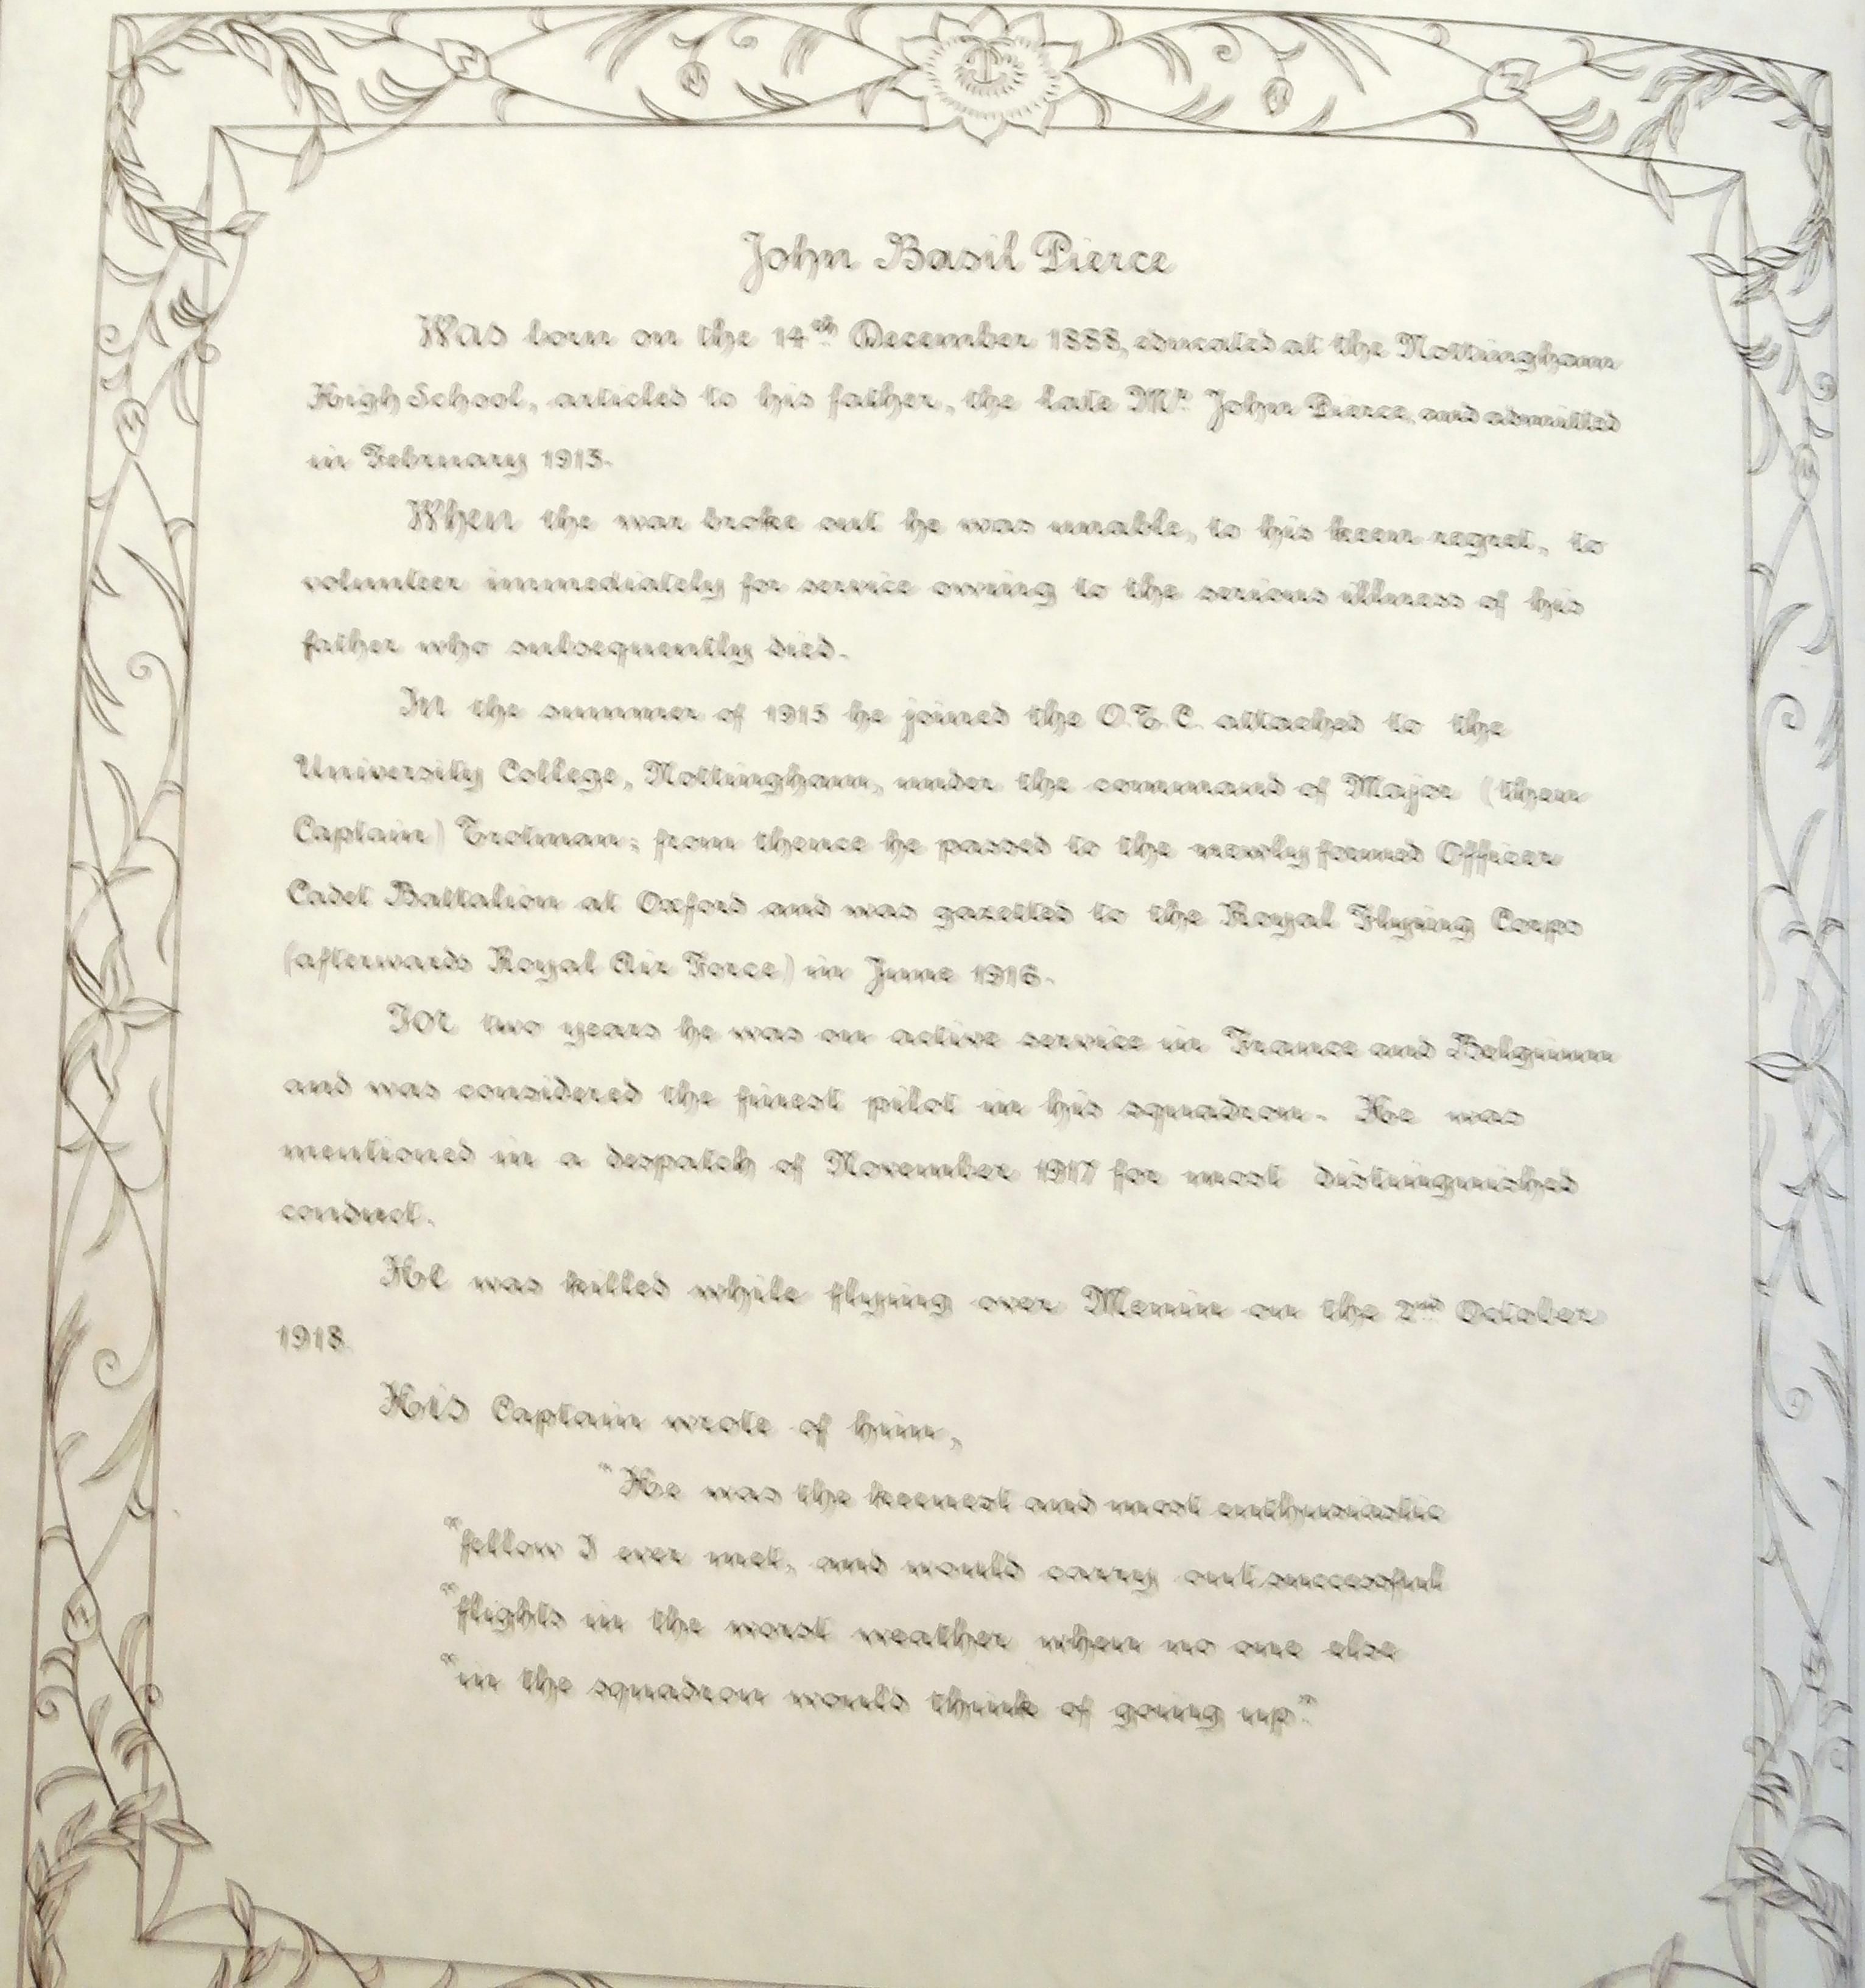 John Basil Pierce
Was born on the 14th December 1888, educated at the Nottingham
High School, articled to his father, the late Mr. John Pierce, and admitted
in February 1913.
When the war broke out he was unable, to his keen regret, to
volunteer immediately for service owing to the serious illness of his
father who subsequently died.
In the summer of 1915 he joined the O.T.C. attached to the
University College, Nottingham, under the command of Major (then
Captain) Trotman; from thence he passed to the newly formed Officer
Cadet Battalion at Oxford and was gazetted to the Royal Flying Corps
(afterwards Royal Air Force) in June 1916.
For two years he was on active service in France and Belgium
and was considered the finest pilot in his squadron. He was
mentioned in a despatch of November 1917 for most distinguished
conduct.
He was killed while flying over Menin on the 2nd October
1918.
His Captain wrote of him,
"He was the keenest and most enthusiastic
"fellow I ever met, and would carry out successful
"flights in the worst weather when no one else
"in the squadron would think of going up."